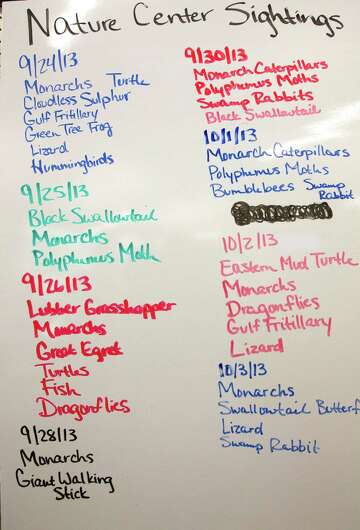 Nature Center Sightings
9/24/13
Monarchs Turtle
Cloudless Sulphur
Gulf Fritillary
Green Tree Frog
Lizard
Hummingbirds
9/25/13
Black Swallowtail
Monarchs
Polyphumus Moth
9/26/13
Lubber Grasshopper
Monarchs
Great Egret
Turtles
Fish
Dragonflies
9/28/13
Monarchs
Giant Walking
Stick
9/30/13
Monarch Caterpillars
Polyphumus Moths
Swamp Rabbits
Black Swallowtail
10/1/13
Monarch Caterpillars
Polyphumus Moths
Bumblebees Swamp
Rabbit
10/2/13
Eastern Mud Turtle
Monarchs
Dragonflies
Gulf Fritillary
Lizard
10/3/13
Monarchs
Swallowtail Butterf
Lizard
Swamp Rabbit